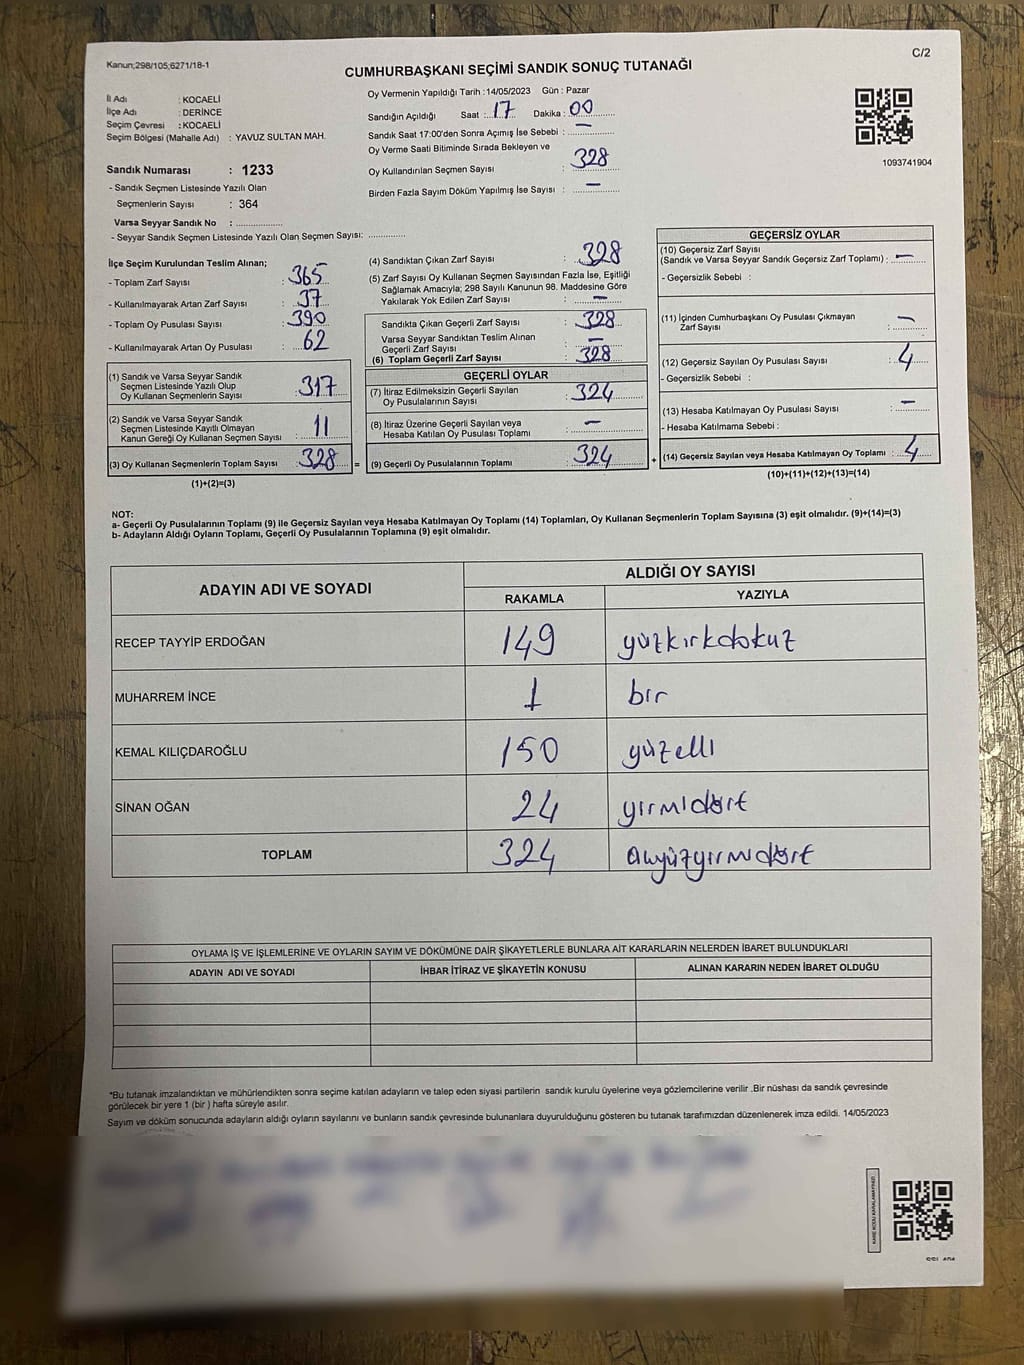 Kanun;298/105;6271/18-1
C/2
CUMHURBAŞKANI SEÇİMİ SANDIK SONUÇ TUTANAĞI
İl Adı : KOCAELİ
İlçe Adı : DERİNCE
Seçim Çevresi : KOCAELİ
Seçim Bölgesi (Mahalle Adı) : YAVUZ SULTAN MAH.
Sandık Numarası : 1233
- Sandık Seçmen Listesinde Yazılı Olan
Seçmenlerin Sayısı : 364
Varsa Seyyar Sandık No : ................
- Seyyar Sandık Seçmen Listesinde Yazılı Olan Seçmen Sayısı: .............
Oy Vermenin Yapıldığı Tarih :14/05/2023 Gün : Pazar
Sandığın Açıldığı Saat : 17 Dakika : 00
Sandık Saat 17:00'den Sonra Açımış İse Sebebi : —
Oy Verme Saati Bitiminde Sırada Bekleyen ve
Oy Kullandırılan Seçmen Sayısı : 328
Birden Fazla Sayım Döküm Yapılmış İse Sayısı : —
1093741904
İlçe Seçim Kurulundan Teslim Alınan;
- Toplam Zarf Sayısı : 365
- Kullanılmayarak Artan Zarf Sayısı : 37
- Toplam Oy Pusulası Sayısı : 390
- Kullanılmayarak Artan Oy Pusulası : 62
(1) Sandık ve Varsa Seyyar Sandık
Seçmen Listesinde Yazılı Olup
Oy Kullanan Seçmenlerin Sayısı : 317
(2) Sandık ve Varsa Seyyar Sandık
Seçmen Listesinde Kayıtlı Olmayan
Kanun Gereği Oy Kullanan Seçmen Sayısı : 11
(3) Oy Kullanan Seçmenlerin Toplam Sayısı : 328 =
(1)+(2)=(3)
(4) Sandıktan Çıkan Zarf Sayısı : 328
(5) Zarf Sayısı Oy Kullanan Seçmen Sayısından Fazla İse, Eşitliği
Sağlamak Amacıyla; 298 Sayılı Kanunun 98. Maddesine Göre
Yakılarak Yok Edilen Zarf Sayısı : —
Sandıkta Çıkan Geçerli Zarf Sayısı : 328
Varsa Seyyar Sandıktan Teslim Alınan
Geçerli Zarf Sayısı : —
(6) Toplam Geçerli Zarf Sayısı : 328
GEÇERLİ OYLAR
(7) İtiraz Edilmeksizin Geçerli Sayılan
Oy Pusulalarının Sayısı : 324
(8) İtiraz Üzerine Geçerli Sayılan veya
Hesaba Katılan Oy Pusulası Toplamı : —
(9) Geçerli Oy Pusulalarının Toplamı : 324 +
GEÇERSİZ OYLAR
(10) Geçersiz Zarf Sayısı
(Sandık ve Varsa Seyyar Sandık Geçersiz Zarf Toplamı) : —
- Geçersizlik Sebebi :
(11) İçinden Cumhurbaşkanı Oy Pusulası Çıkmayan
Zarf Sayısı : —
(12) Geçersiz Sayılan Oy Pusulası Sayısı : 4
- Geçersizlik Sebebi :
(13) Hesaba Katılmayan Oy Pusulası Sayısı : —
- Hesaba Katılmama Sebebi :
(14) Geçersiz Sayılan veya Hesaba Katılmayan Oy Toplamı : 4
(10)+(11)+(12)+(13)=(14)
NOT:
a- Geçerli Oy Pusulalarının Toplamı (9) ile Geçersiz Sayılan veya Hesaba Katılmayan Oy Toplamı (14) Toplamları, Oy Kullanan Seçmenlerin Toplam Sayısına (3) eşit olmalıdır. (9)+(14)=(3)
b- Adayların Aldığı Oyların Toplamı, Geçerli Oy Pusulalarının Toplamına (9) eşit olmalıdır.
ADAYIN ADI VE SOYADI ALDIĞI OY SAYISI
RAKAMLA YAZIYLA
RECEP TAYYİP ERDOĞAN 149 yüzkırkdokuz
MUHARREM İNCE 1 bir
KEMAL KILIÇDAROĞLU 150 yüzelli
SİNAN OĞAN 24 yirmidört
TOPLAM 324 üçyüzyirmidört
OYLAMA İŞ VE İŞLEMLERİNE VE OYLARIN SAYIM VE DÖKÜMÜNE DAİR ŞİKAYETLERLE BUNLARA AİT KARARLARIN NELERDEN İBARET BULUNDUKLARI
ADAYIN ADI VE SOYADI İHBAR İTİRAZ VE ŞİKAYETİN KONUSU ALINAN KARARIN NEDEN İBARET OLDUĞU
*Bu tutanak imzalandıktan ve mühürlendikten sonra seçime katılan adayların ve talep eden siyasi partilerin sandık kurulu üyelerine veya gözlemcilerine verilir .Bir nüshası da sandık çevresinde
görülecek bir yere 1 (bir ) hafta süreyle asılır.
Sayım ve döküm sonucunda adayların aldığı oyların sayılarını ve bunların sandık çevresinde bulunanlara duyurulduğunu gösteren bu tutanak tarafımızdan düzenlenerek imza edildi. 14/05/2023